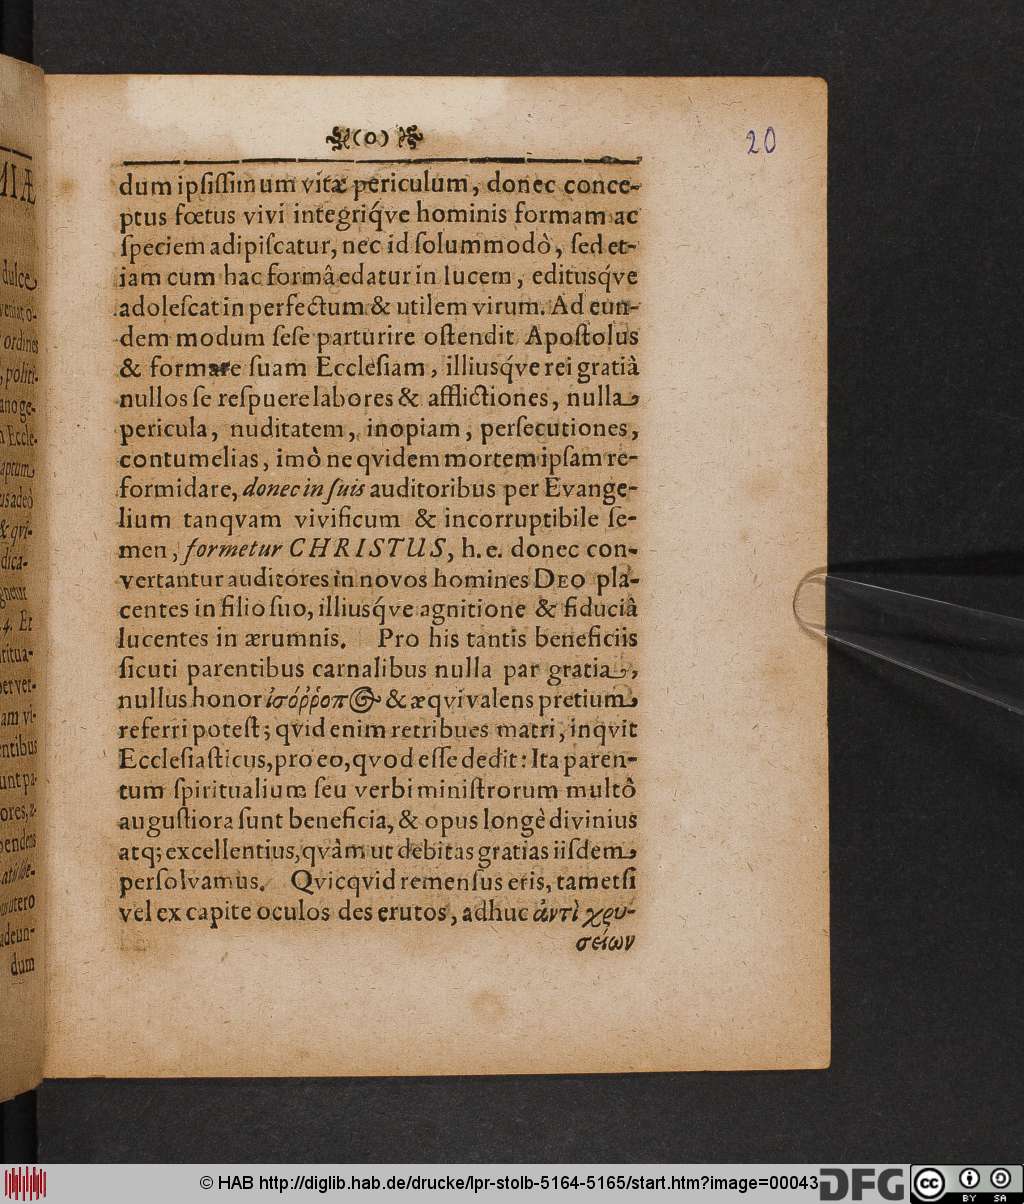 (o)
20
dum ipſiſſimum vitæ periculum, donec conce-
ptus fœtus vivi integriq́ve hominis formam ac
ſpeciem adipiſcatur, nec id ſolummodò, ſed et-
iam cum hac formâ edatur in lucem, edituſq́ve
adoleſcat in perfectum & utilem virum. Ad eun-
dem modum ſeſe parturire oſtendit Apoſtolus
& formare ſuam Eccleſiam, illiusq́ve rei gratiâ
nullos ſe reſpuere labores & afflictiones, nulla
pericula, nuditatem, inopiam, perſecutiones,
contumelias, imò ne qvidem mortem ipſam re-
formidare, donec in ſuis auditoribus per Evange-
lium tanqvam vivificum & incorruptibile ſe-
men, formetur CHRISTUS, h. e. donec con-
vertantur auditores in novos homines DEO pla-
centes in filio ſuo, illiusq́ve agnitione & fiduciâ
lucentes in ærumnis. Pro his tantis beneficiis
ſicuti parentibus carnalibus nulla par gratia,
nullus honor ἰσόῤῥοπ@ & æqvivalens pretium
referri poteſt; qvid enim retribues matri, inqvit
Eccleſiaſticus, pro eo, qvod eſſe dedit: Ita paren-
tum ſpiritualium ſeu verbi miniſtrorum multò
auguſtiora ſunt beneficia, & opus longè divinius
atq; excellentius, qvàm ut debitas gratias iiſdem
perſolvamus. Qvicqvid remenſus eris, tametſi
vel ex capite oculos des erutos, adhuc ἀντὶ χρυ-
σείων
MIÆ
dulce
veniat o-
ordines
politi-
ano ge-
Eccle-
captum
us adeò
& qvi-
dica-
4. Et
ritua-
per ver-
am vi-
entibus
unt pa-
ores,
pendens
utero
adeun-
dum
© HAB http://diglib.hab.de/drucke/lpr-stolb-5164-5165/start.htm?image=00043
DFG
cc
BY SA